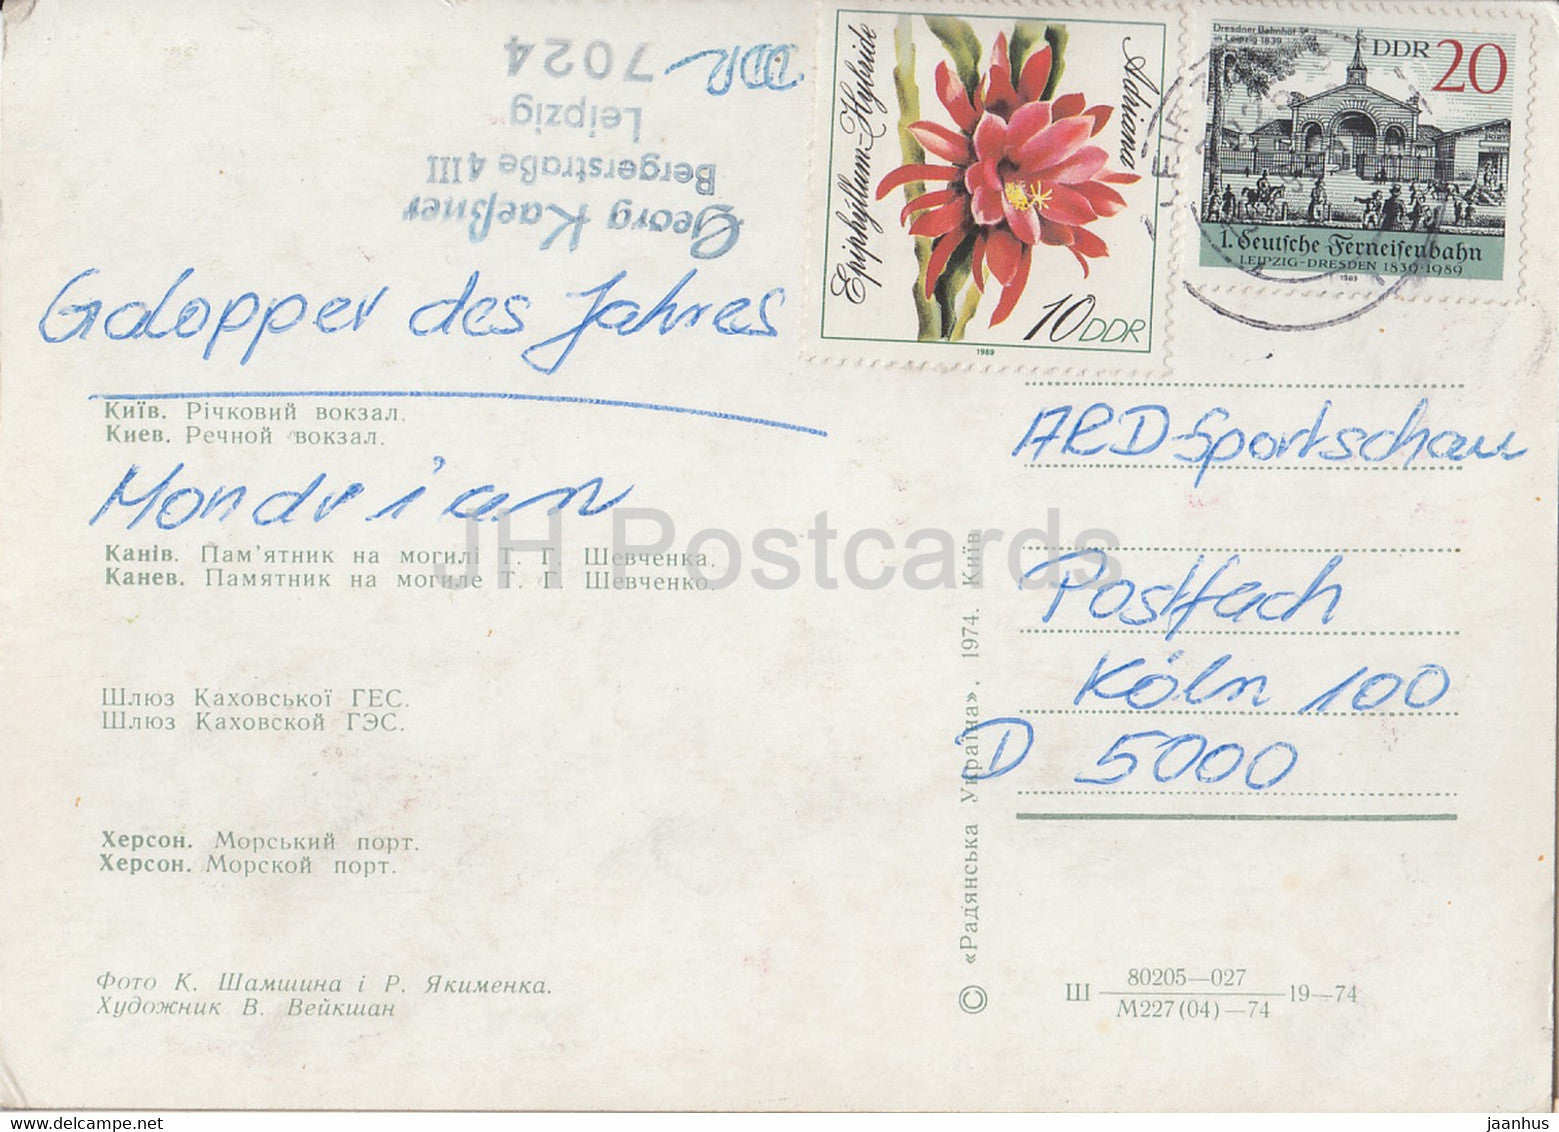 DDR
7024
Leipzig
Bergerstraße 4 III
Georg Kaeßner
Epiphyllum-Hybride
Adriana
10 DDR
1989
Dresdner Bahnhof
Leipzig 1839
DDR 20
1. deutsche Ferneisenbahn
LEIPZIG-DRESDEN 1839·1989
1989
Galopper des Jahres
Київ. Річковий вокзал.
Киев. Речной вокзал.
Mondrian
Канів. Пам'ятник на могилі Т. Г. Шевченка.
Канев. Памятник на могиле Т. Г. Шевченко.
Шлюз Каховської ГЕС.
Шлюз Каховской ГЭС.
Херсон. Морський порт.
Херсон. Морской порт.
Фото К. Шамшина і Р. Якименка.
Художник В. Вейкшан
© «Радянська Україна». 1974. Київ
ARD-Sportschau
Postfach
Köln 100
D 5000
Ш 80205—027
М227(04)—74 19—74
JH Postcards
delcampe.net
jaanhus